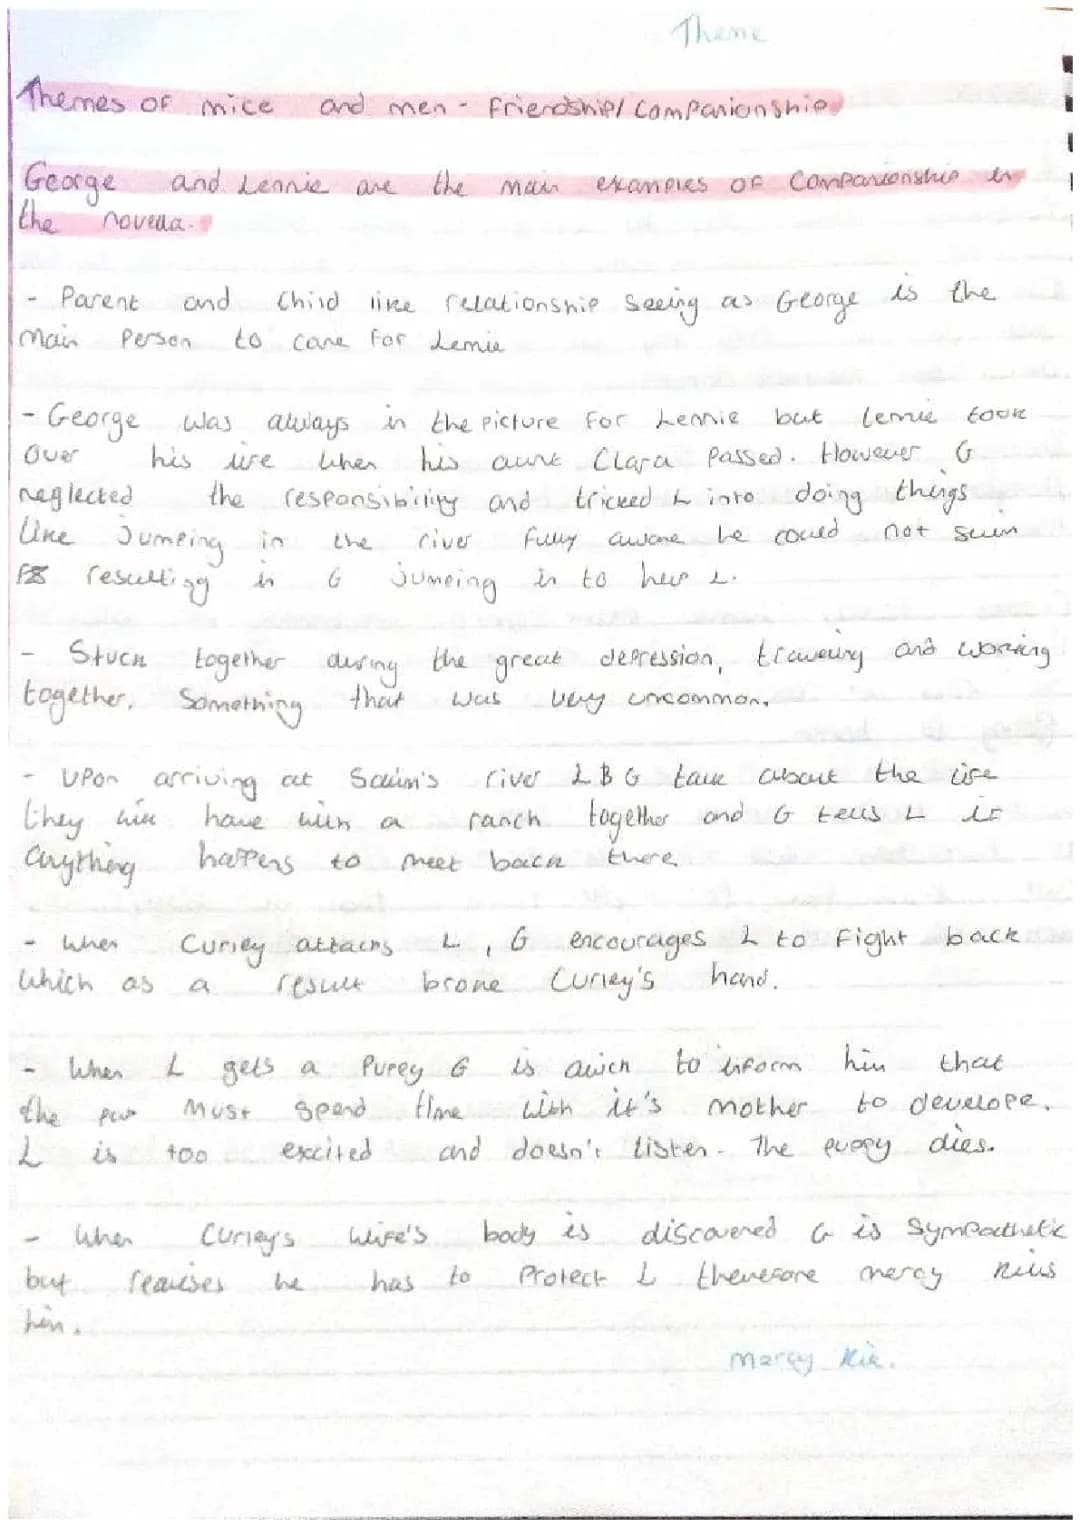 Theme
Themes of mice and men - friendship/companionship
George and Lennie are the main examples of companionship in
the novella.
- Parent and child like relationship seeing as George is the
main person to care for Lennie
- George was always in the picture for Lennie but Lennie took
over his life when his aunt Clara passed. However G
neglected the responsibility and tricked L into doing things
like jumping in the river fully aware he could not swim
resulting in G jumping in to help L.
- Stuck together during the great depression, travelling and working
together. Something that was very uncommon.
- Upon arriving at river L & G talk about the life
they will have with a ranch together and G tells L if
anything happens to meet back there.
- When Curley attacks L, G encourages L to fight back
which as a result broke Curley's hand.
- When L gets a puppy G is quick to inform him that
the pup must spend time with it's mother to develope.
L is too excited and doesn't listen. The puppy dies.
- When Curley's wife's body is discovered G is sympathetic
but realises he has to protect L therefore mercy kills
him.
mercy kill.